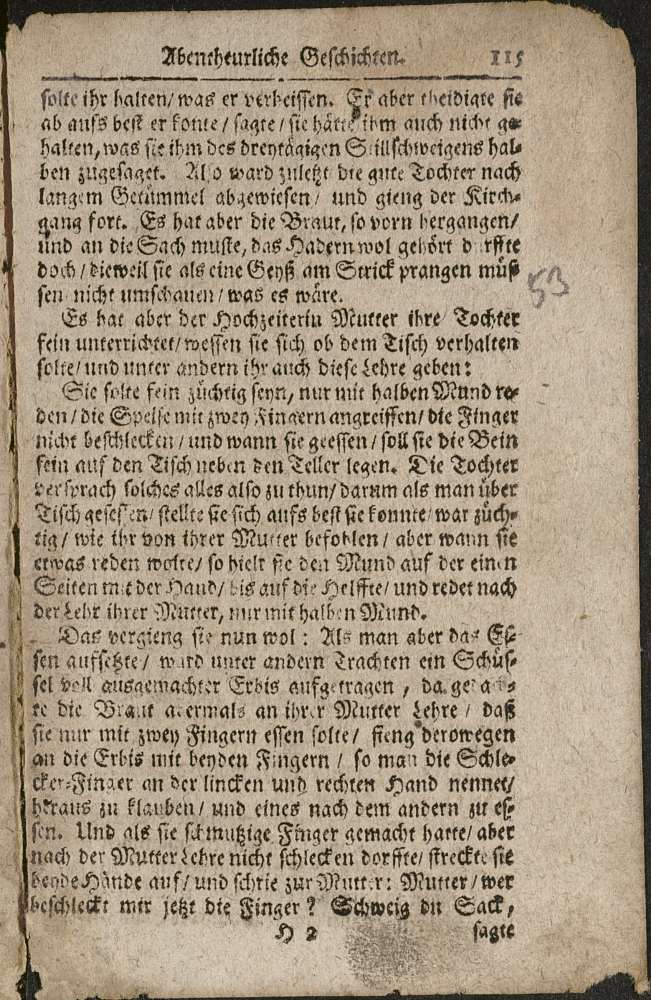 Abentheurliche Geschichten. 115
solte ihr halten/ was er verheissen. Er aber theidigte sie
ab auffs best er konte / sagte / sie hätte ihm auch nicht ge-
halten, was sie ihm des dreytägigen Stillschweigens hal-
ben zugesaget. Also ward zuletzt die gute Tochter nach
langem Getümmel abgewiesen / und gieng der Kirch-
gang fort. Es hat aber die Braut, so vorn hergangen/
und an die Sach muste, das Hadern wol gehört dorffte
doch / dieweil sie als eine Geyß am Strick prangen müs-
sen nicht umschauen / was es wäre.
Es hat aber der Hochzeiterin Mutter ihre Tochter
fein unterrichtet/ wessen sie sich ob dem Tisch verhalten
solte/ und unter andern ihr auch diese Lehre geben:
Sie solte fein züchtig seyn, nur mit halben Mund re-
den / die Speise mit zwey Fingern angreiffen/ die Finger
nicht beschlecken / und wann sie geessen / soll sie die Bein
fein auf den Tisch neben den Teller legen. Die Tochter
versprach solches alles also zu thun/ darum als man über
Tisch gesessen/ stellte sie sich aufs best sie konnte/ war züch-
tig / wie ihr von ihrer Mutter befohlen / aber wann sie
etwas reden wolte/ so hielt sie den Mund auf der einen
Seiten mit der Hand/ bis auf die Helffte/ und redet nach
der Lehr ihrer Mutter, nur mit halben Mund.
Das vergieng sie nun wol : Als man aber das Es-
sen aufsetzte / ward unter andern Trachten ein Schüs-
sel voll ausgemachter Erbis aufgetragen , da gedach-
te die Braut abermals an ihrer Mutter Lehre / daß
sie nur mit zwey Fingern essen solte / fieng derowegen
an die Erbis mit beyden Fingern / so man die Schle-
cker-Finger an der lincken und rechten Hand nennet/
heraus zu klauben / und eines nach dem andern zu es-
sen. Und als sie schmutzige Finger gemacht hatte/ aber
nach der Mutter Lehre nicht schlecken dorffte/ streckte sie
beyde Hände auf / und schrie zur Mutter: Mutter / wer
beschleckt mir jetzt die Finger ? Schweig du Sack,
H 2 sagte
53